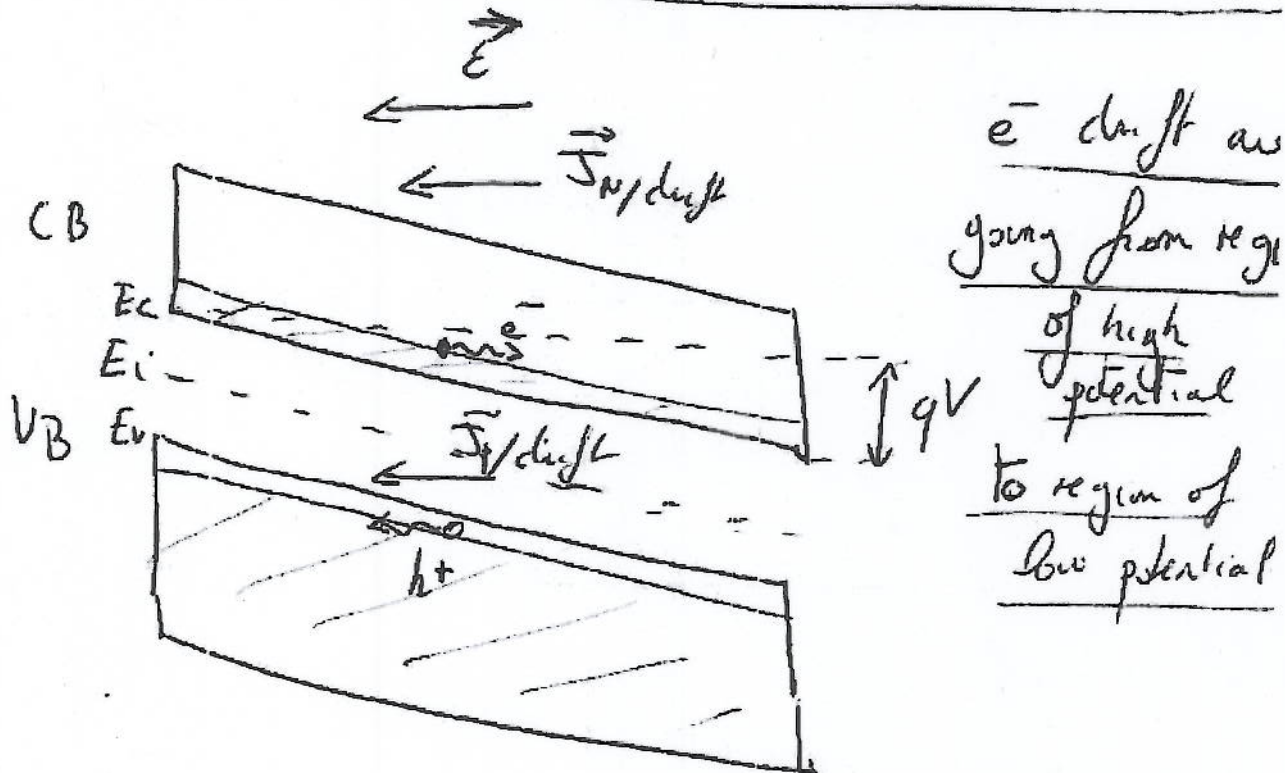 ε
J N/drift
CB
Ec
e⁻
Ei
VB
Ev
J p/drift
h+
qV
e⁻ drift as
going from regi
of high
potential
to region of
low potential